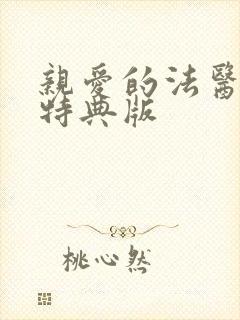 親愛的法醫
特典版
桃心然